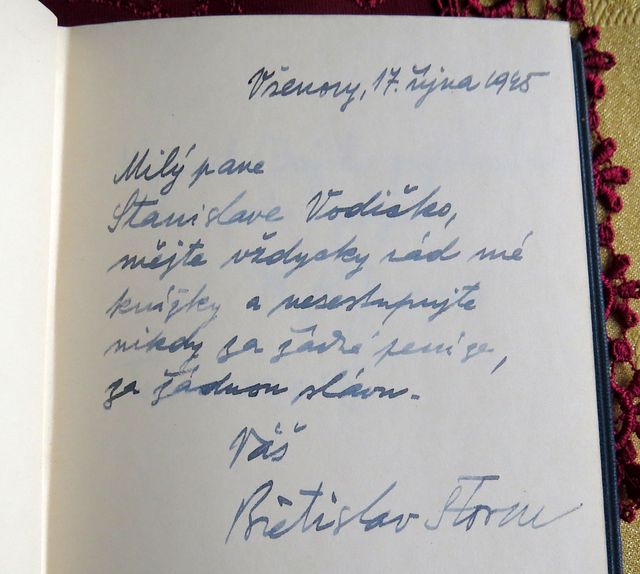 Všenory, 17. října 1945
Milý pane
Stanislave Vodičko,
mějte vždycky rád mé
knížky a nesestupujte
nikdy za žádné peníze,
za žádnou slávu.
Váš
Břetislav Storm